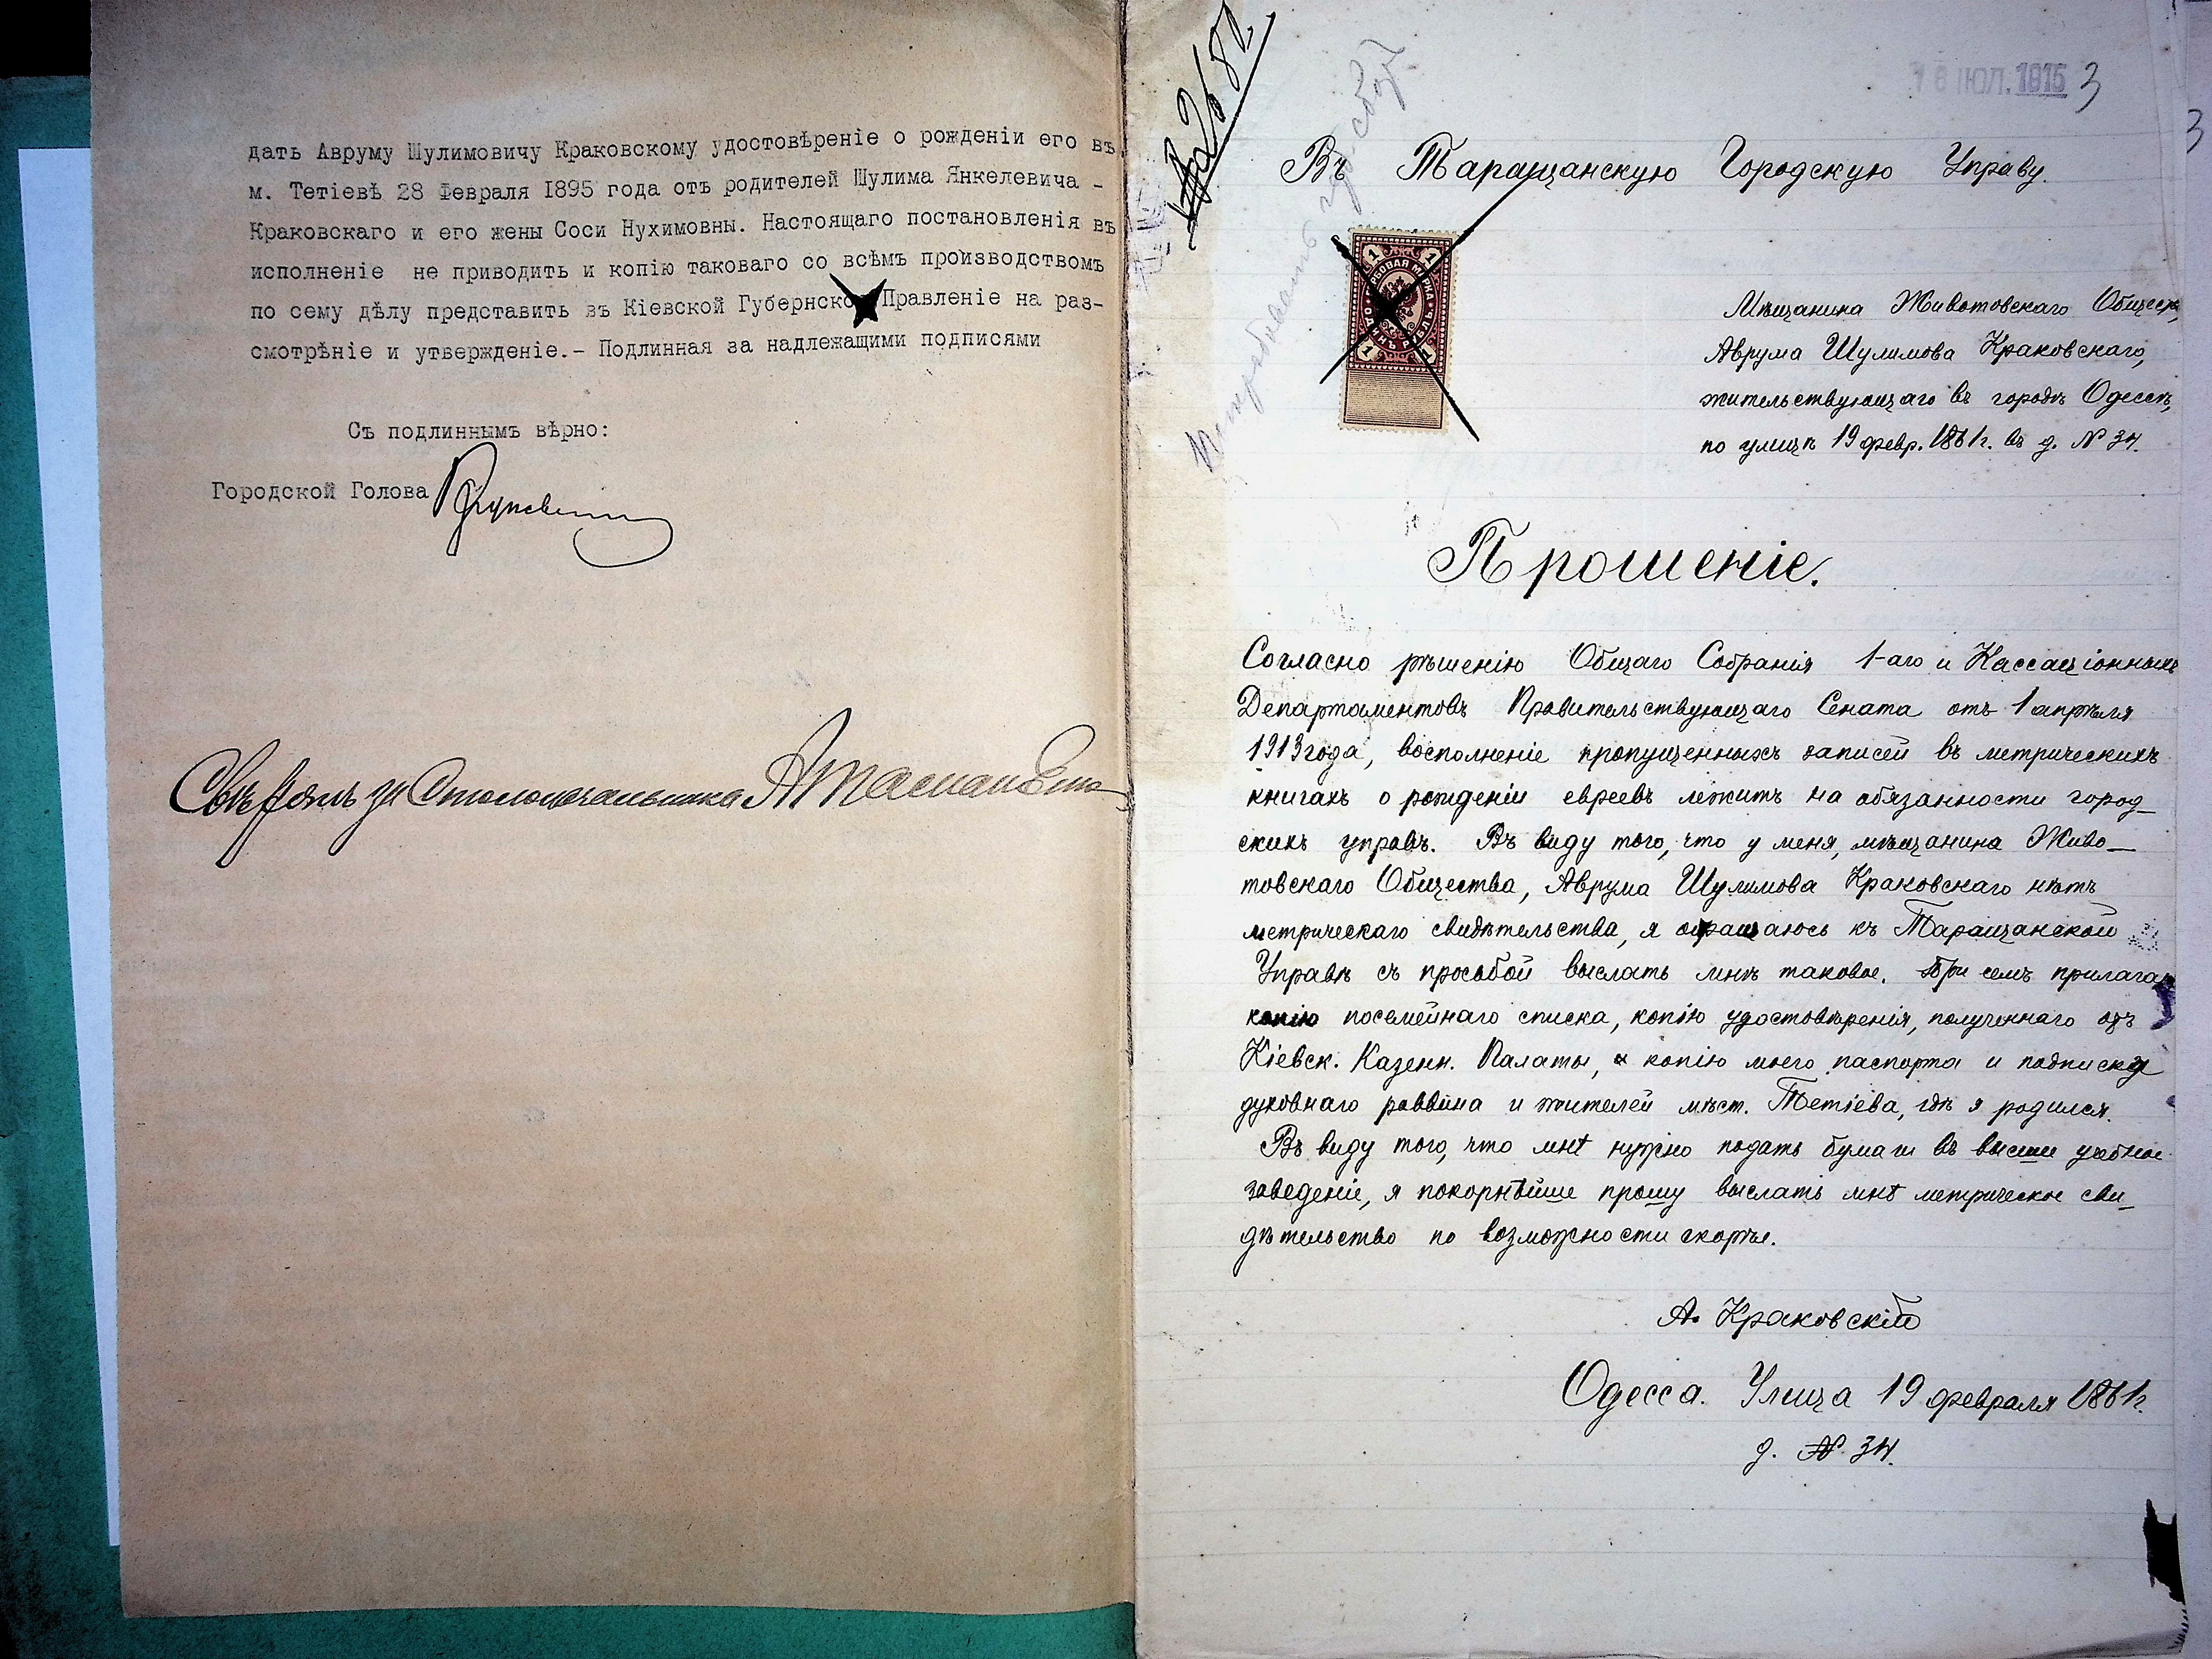 дать Авруму Шулимовичу Краковскому удостовѣреніе о рожденіи его въ
м. Тетіевѣ 28 Февраля 1895 года отъ родителей Шулима Янкелевича -
Краковскаго и его жены Соси Нухимовны. Настоящаго постановленія въ
исполненіе не приводить и копію таковаго со всѣмъ производствомъ
по сему дѣлу представить въ Кіевской Губернское Правленіе на раз-
смотрѣніе и утвержденіе.- Подлинная за надлежащими подписями
Съ подлиннымъ вѣрно:
Городской Голова
за Столоначальника
18 ІЮЛ. 1915 3
3
Въ Таращанскую Городскую Управу.
ГЕРБОВАЯ МАРКА ОДИНЪ РУБЛЬ
1 1 1 1
Мѣщанина Животовскаго Общества,
Аврума Шулимова Краковскаго,
жительствующаго въ городѣ Одессѣ,
по улицѣ 19 февр. 1861 г. въ д. № 34.
Прошеніе.
Согласно рѣшенію Общаго Собранія 1-аго и Кассаціонныхъ
Департаментовъ Правительствующаго Сената отъ 1 апрѣля
1913 года, восполненіе пропущенныхъ записей въ метрическихъ
книгахъ о рожденіи евреевъ лежитъ на обязанности город-
скихъ управъ. Въ виду того, что у меня, мѣщанина Живо-
товскаго Общества, Аврума Шулимова Краковскаго нѣтъ
метрическаго свидѣтельства, я обращаюсь къ Таращанской
Управѣ съ просьбой выслать мнѣ таковое. При семъ прилагаю
копію посемейнаго списка, копію удостовѣренія, полученнаго отъ
Кіевск. Казенн. Палаты, копію моего паспорта и подписку
духовнаго раввина и жителей мѣст. Тетіева, гдѣ я родился.
Въ виду того, что мнѣ нужно подать бумаги въ высшее учебное
заведеніе, я покорнѣйше прошу выслать мнѣ метрическое сви-
дѣтельство по возможности скорѣе.
А. Краковскій
Одесса. Улица 19 февраля 1861 г.
д. № 34.